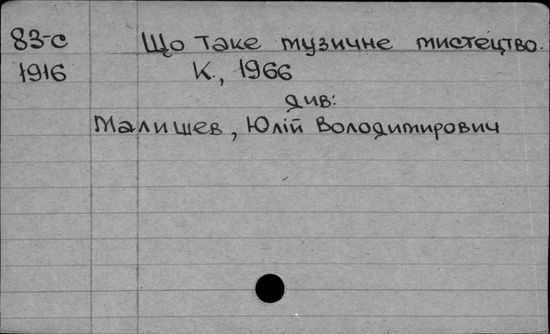 83-с Що таке музичне мистецтво.
1916 К., 1966
див:
Малишев, Юлій Володимирович